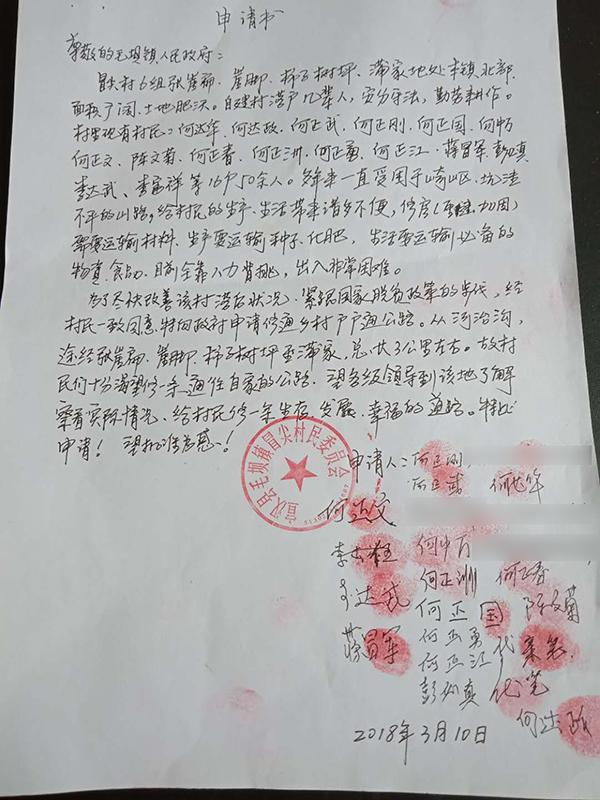 申请书
尊敬的毛坝镇人民政府：
冒尖村6组张崖扁、崖脚、柿子树坪、蒲家地处本镇北部，
面积宽阔、土地肥沃。自建村落户几辈人，安分守法，勤劳耕作。
村里现有村民：何达华、何达政、何正武、何正刚、何正国、何中万
何正文、陈文菊、何正春、何正洲、何正勇、何正江、蒋昌军、彭烈真
李达武、李富祥等16户50余人。多年来一直受困于崎岖山区、坑洼
不平的山路，给村民的生产、生活带来诸多不便，修房（重建、加固）
需要运输材料、生产要运输种子、化肥，生活要运输必备的
物资、食品、目前全靠人力肩挑，出入非常困难。
为了尽快改善该村落后状况、紧跟国家脱贫政策的步伐，经
村民一致同意，特向政府申请修通乡村户户通公路。从河沿沟，
途经张崖扁、崖脚、柿子树坪至蒲家，总共3公里左右。故村
民们十分渴望修一条通往自家的公路，望各级领导到该地了解
察看实际情况、给村民修一条生存、发展、幸福的道路。特此
申请！望批准为感！
宣汉县毛坝镇冒尖村民委员会
申请人：何正刚
何正武 何达华
何正文
何中万
何正洲 何正春
李达武 何正国 陈文菊
蒋昌军 何正勇
何正江 代
彭烈真 代笔
何达政
2018年3月10日